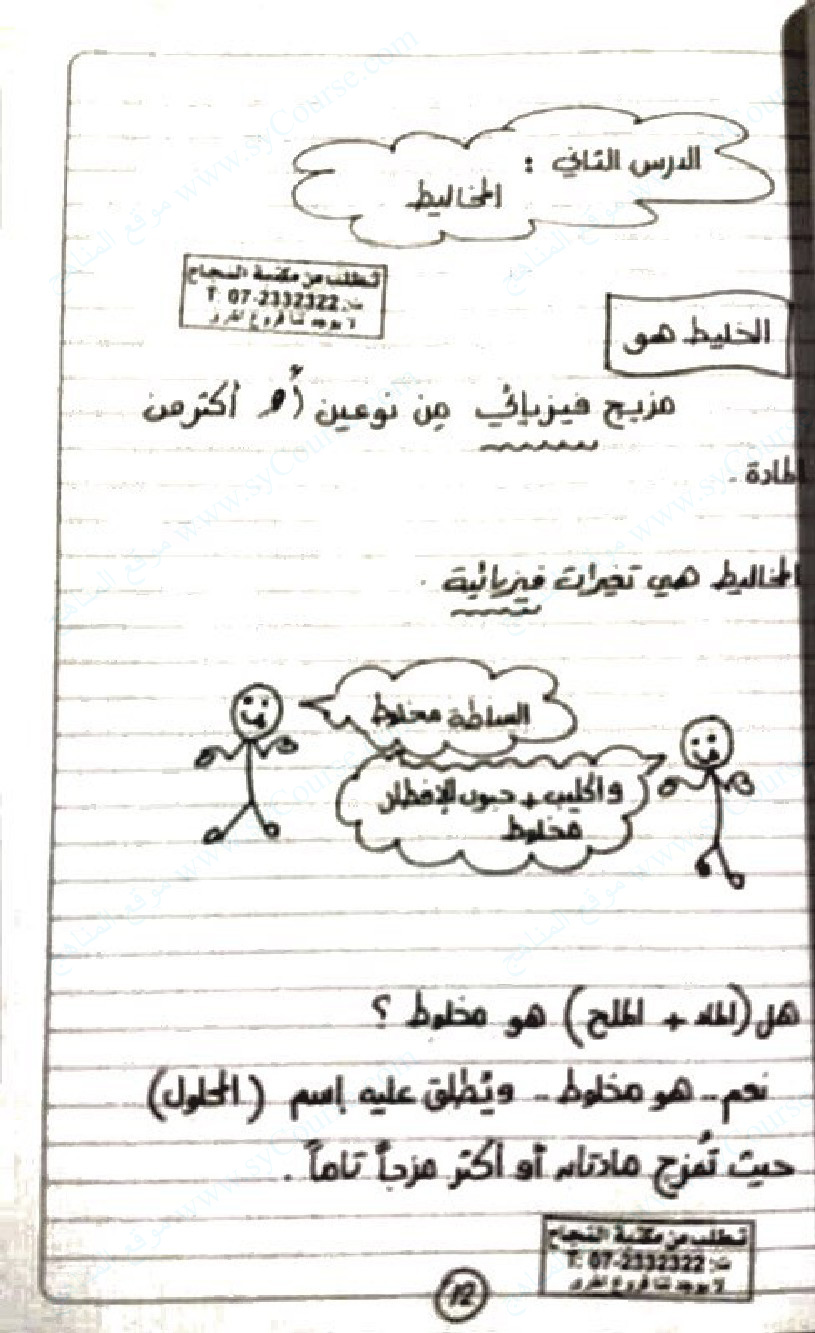 الدرس الثاني :
المخاليط
تطلب من مكتبة النجاح
ت: T: 07-2332322
لا يوجد لنا فروع اخرى
الخليط هو
مزيج فيزيائي من نوعين أو أكثر من
المادة .
المخاليط هي تغيرات فيزيائية .
السلطة مخلوط
والحليب + حبوب الإفطار
مخلوط
هل (الماء + الملح) هو مخلوط ؟
نعم .. هو مخلوط .. ويُطلق عليه إسم (المحلول)
حيث تُمزج مادتان أو أكثر مزجاً تاماً .
تطلب من مكتبة النجاح
ت: T: 07-2332322
لا يوجد لنا فروع اخرى
12
موقع المناهج www.syCourse.com